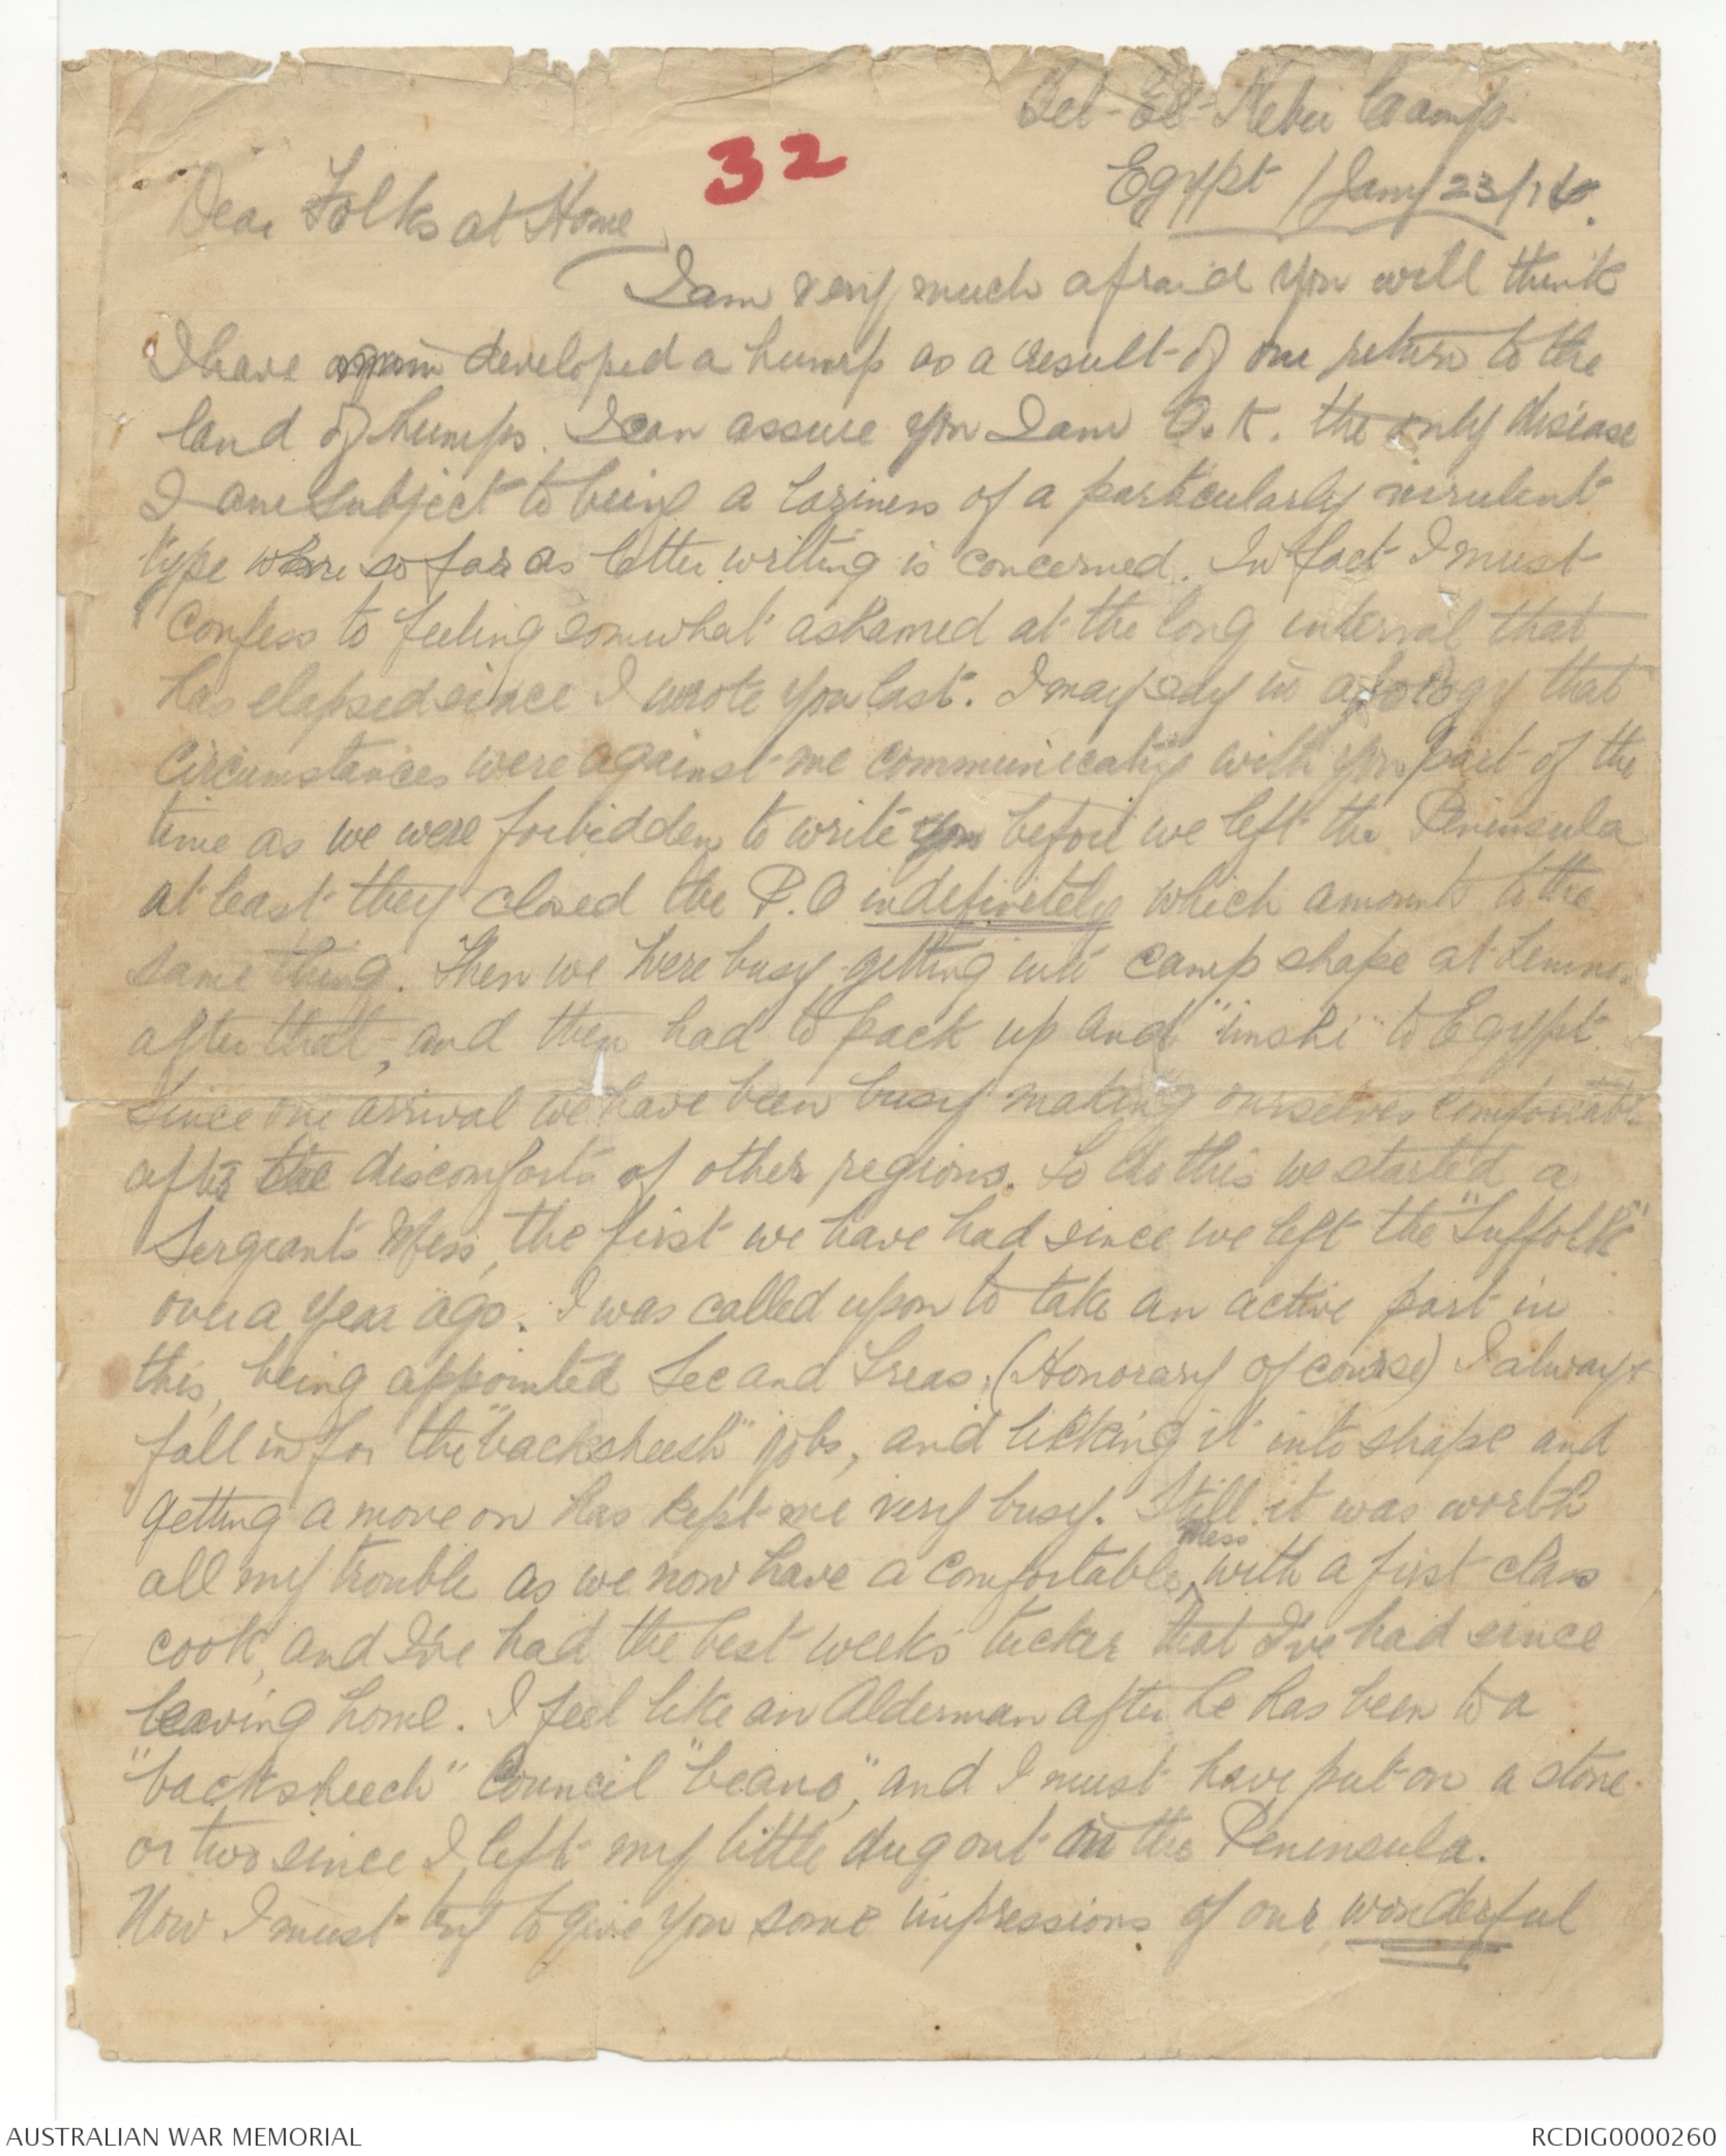 Tel-El-Kebir Camp.
32
Egypt / Jany 23/16.
Dear Folks at Home
I am very much afraid you will think
I have developed a hump as a result of our return to the
land of humps. I can assure you I am O.K. the only disease
I am subject to being a laziness of a particularly virulent
type where so far as letter writing is concerned. In fact I must
confess to feeling somwhat ashamed at the long interval that
has elapsed since I wrote you last. I may say in apology that
circumstances were against me communicating with you part of the
time as we were forbidden to write you before we left the Peninsula
at least they closed the P.O indefinitely which amounts to the
same thing. Then we were busy getting into camp shape at Lemnos
after that, and then had to pack up and "imshi" to Egypt.
Since our arrival we have been busy making ourselves comfortable
after the discomforts of other regions. To do this we started a
Sergeants Mess, the first we have had since we left the "Suffolk"
over a year ago. I was called upon to take an active part in
this, being appointed Sec and Treas, (Honorary of course) I always
fall in for the "backsheesh" jobs, and licking it into shape and
getting a move on has kept me very busy. Still it was worth
all my trouble as we now have a comfortable Mess with a first class
cook, and I've had the best weeks tucker that I've had since
leaving home. I feel like an Alderman after he has been to a
"backsheech" Council "beano," and I must have put on a stone
or two since I left my little dug out on the Peninsula.
Now I must try to give you some impressions of our wonderful
AUSTRALIAN WAR MEMORIAL
RCDIG0000260